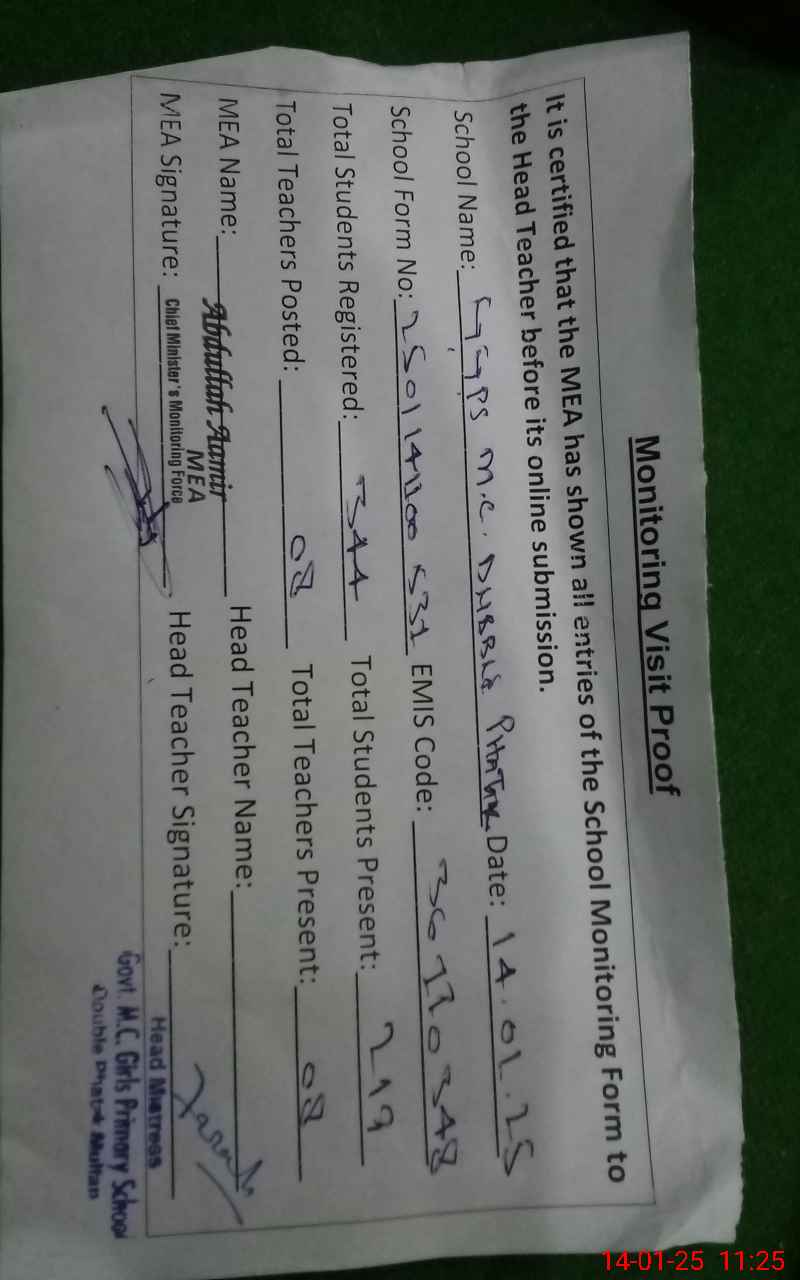 Monitoring Visit Proof
It is certified that the MEA has shown all entries of the School Monitoring Form to
the Head Teacher before its online submission.
School Name: GGPS M.C. Date: 14.01.25
School Form No: EMIS Code:
Total Students Registered: 344 Total Students Present:
Total Teachers Posted: 08 Total Teachers Present: 08
MEA Name: Abdullah Aamir Head Teacher Name:
MEA
MEA Signature: Chief Minister's Monitoring Force Head Teacher Signature:
Head Mistress
Govt. M.C. Girls Primary School
Double Phatak Multan
14-01-25 11:25